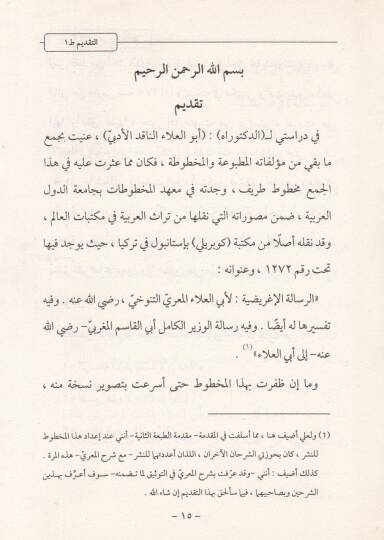 التقديم ط١
بسم الله الرحمن الرحيم
تقديم
في دراستي لـ(الدكتوراه) : (أبو العلاء الناقد الأدبيّ) ، عنيت بجمع
ما بقي من مؤلفاته المطبوعة والمخطوطة ، فكان مما عثرت عليه في هذا
الجمع مخطوط طريف ، وجدته في معهد المخطوطات بجامعة الدول
العربية ، ضمن مصوراته التي نقلها من تراث العربية في مكتبات العالم ،
وقد نقله أصلًا من مكتبة (كوبريلي) بإستانبول في تركيا ، حيث يوجد فيها
تحت رقم ١٢٧٢ ، وعنوانه :
«الرسالة الإغريضية : لأبي العلاء المعريّ التنوخيّ ، رضي الله عنه . وفيه
تفسيرها له أيضًا . وفيه رسالة الوزير الكامل أبي القاسم المغربيّ- رضي الله
عنه- إلى أبي العلاء»(١) .
وما إن ظفرت بهذا المخطوط حتى أسرعت بتصوير نسخة منه ،
(١) ولعلي أضيف هنا ، مما أسلفت في المقدمة- مقدمة الطبعة الثانية- أنني عند إعداد هذا المخطوط
للنشر ، كان بحوزتي الشرحان الآخران ، اللذان أعددتهما للنشر- مع شرح المعريّ- هذه المرة .
كذلك أضيف : أنني -وقد عرّفت بشرح المعريّ في التوثيق لما تضمنه- سوف أعرّف بهذين
الشرحين وبصاحبيهما ، فيما سألحق بهذا التقديم إن شاء الله .
- ١٥ -